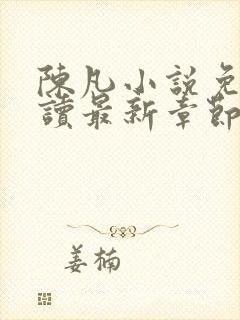 陳凡小說免
讀最新章節
姜楠